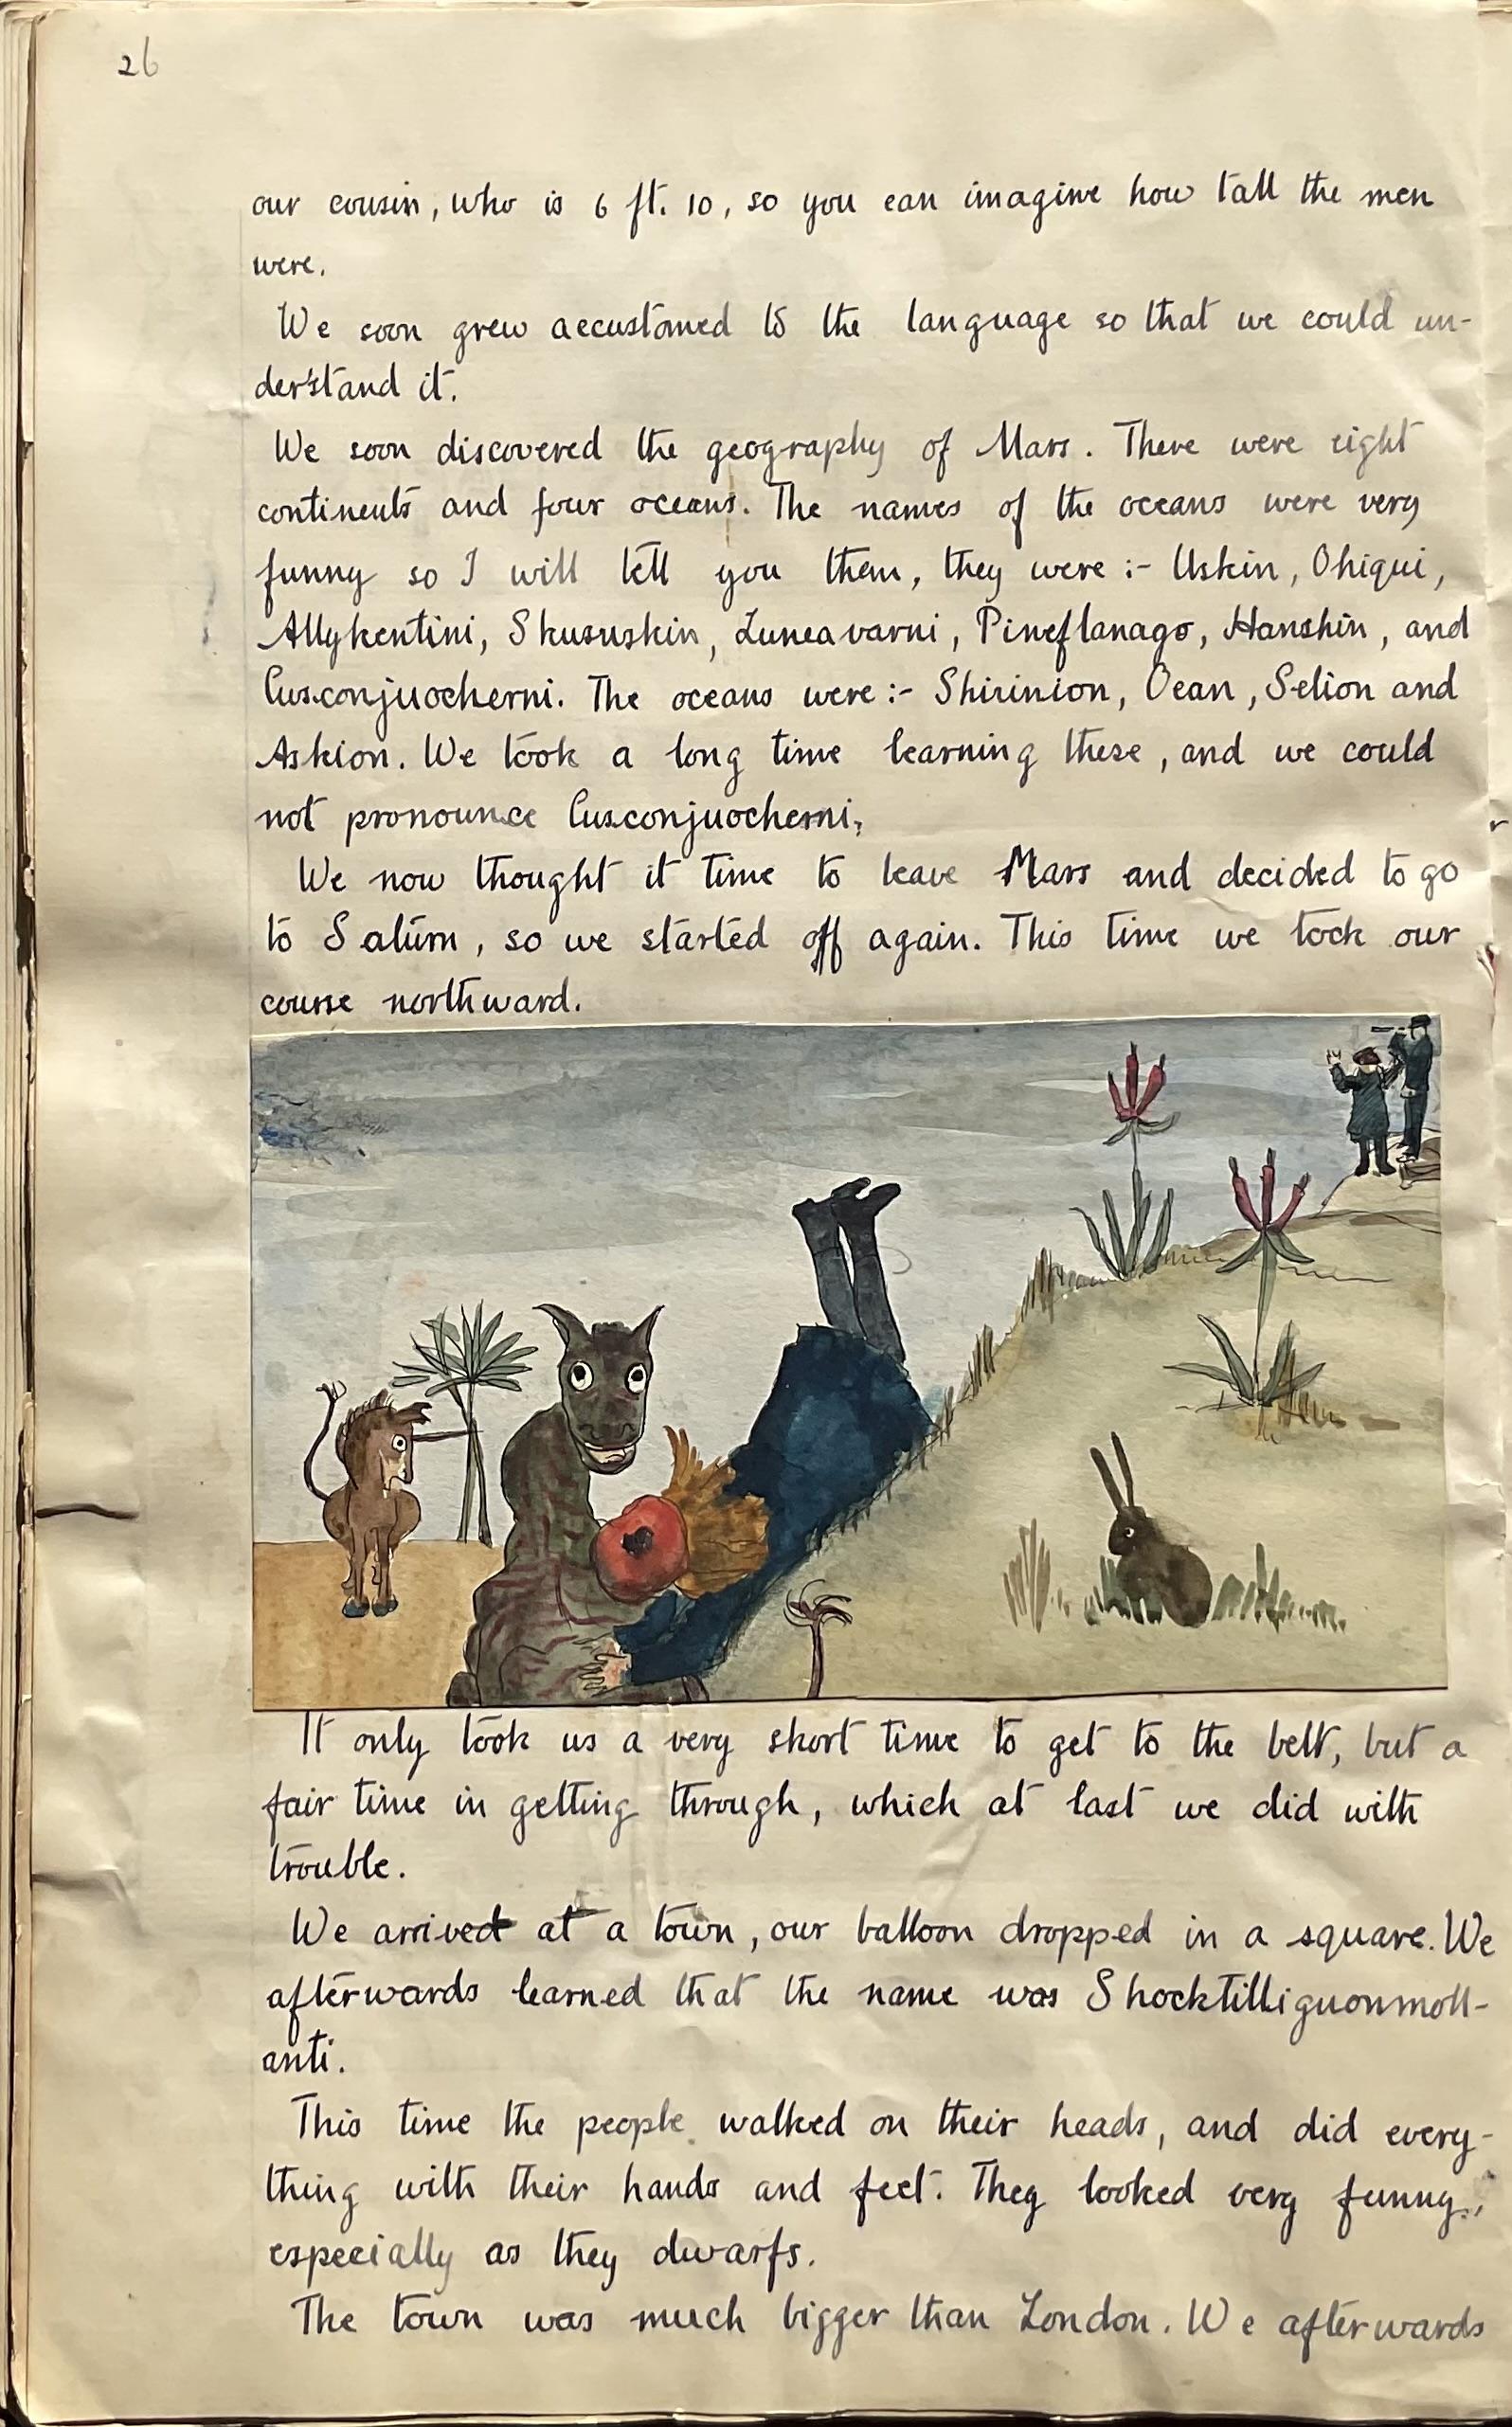 26
our cousin, who is 6 ft. 10, so you can imagine how tall the men
were.
We soon grew accustomed to the language so that we could un-
derstand it.
We soon discovered the geography of Mars. There were eight
continents and four oceans. The names of the oceans were very
funny so I will tell you them, they were :- Uskin, Ohiqui,
Allykentini, Skususkin, Luneavarni, Pineflanago, Hanshin, and
Cusconjuocherni. The oceans were :- Shirinion, Ocan, Selion and
Askion. We took a long time learning these, and we could
not pronounce Cusconjuocherni.
We now thought it time to leave Mars and decided to go
to Saturn, so we started off again. This time we took our
course northward.
It only took us a very short time to get to the belt, but a
fair time in getting through, which at last we did with
trouble.
We arrived at a town, our balloon dropped in a square. We
afterwards learned that the name was Shocktilliguonmoll-
anti.
This time the people walked on their heads, and did every-
thing with their hands and feet. They looked very funny,
especially as they dwarfs.
The town was much bigger than London. We afterwards